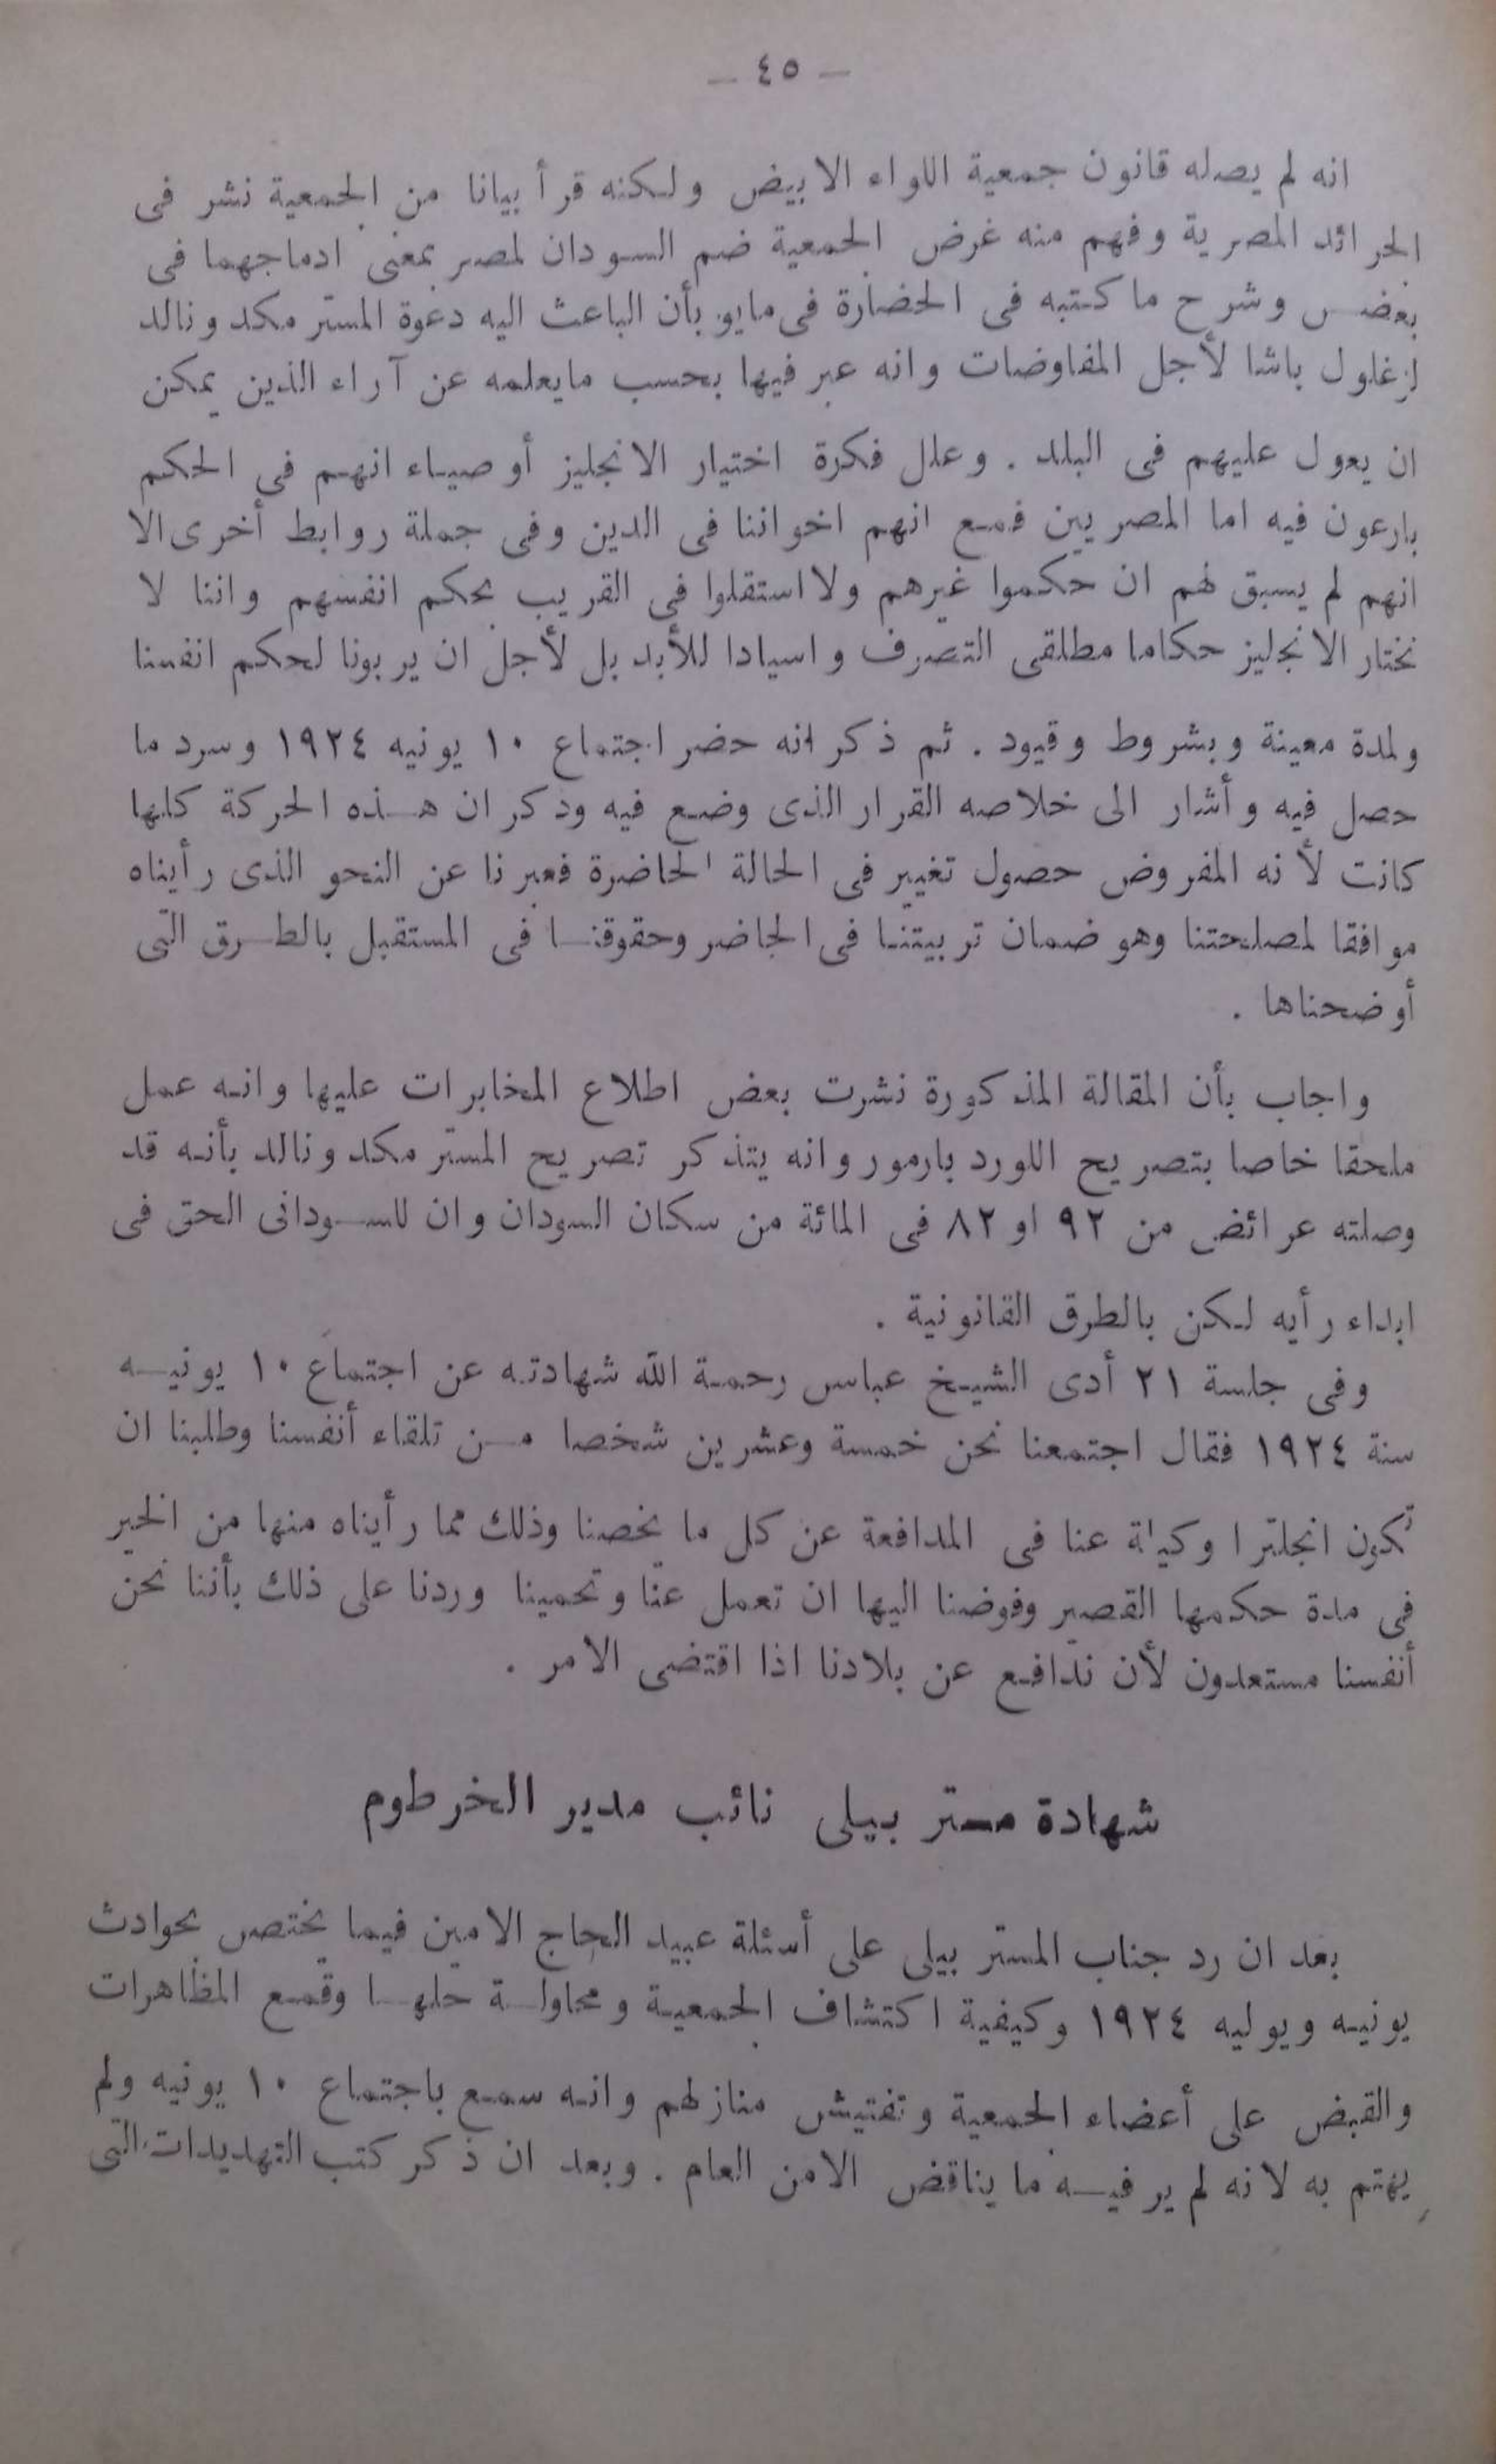 — ٤٥ —
انه لم يصله قانون جمعية اللواء الابيض ولكنه قرأ بيانا من الجمعية نشر فى
الجرائد المصرية وفهم منه غرض الجمعية ضم السودان لمصر بمعنى ادماجهما فى
بعضس وشرح ما كتبه فى الحضارة فى مايو بأن الباعث اليه دعوة المستر مكدونالد
لزغلول باشا لأجل المفاوضات وانه عبر فيها بحسب مايعلمه عن آراء الذين يمكن
ان يعول عليهم فى البلد . وعلل فكرة اختيار الانجليز أوصياء انهم فى الحكم
بارعون فيه اما المصريين فمع انهم اخواننا فى الدين وفى جملة روابط أخرى الا
انهم لم يسبق لهم ان حكموا غيرهم ولا استقلوا فى القريب بحكم انفسهم واننا لا
نختار الانجليز حكاما مطلقى التصرف واسيادا للأبد بل لأجل ان يربونا لحكم انفسنا
ولمدة معينة وبشروط وقيود . ثم ذكر انه حضر اجتماع ١٠ يونيه ١٩٢٤ وسرد ما
حصل فيه وأشار الى خلاصه القرار الذى وضع فيه ودكر ان هذه الحركة كلها
كانت لأنه المفروض حصول تغيير فى الحالة الحاضرة فعبرنا عن النحو الذى رأيناه
موافقا لمصلحتنا وهو ضمان تربيتنا فى الحاضر وحقوقنا فى المستقبل بالطرق التى
أوضحناها .
واجاب بأن المقالة المذكورة نشرت بعض اطلاع المخابرات عليها وانه عمل
ملحقا خاصا بتصريح اللورد بارمور وانه يتذكر تصريح المستر مكدونالد بأنه قد
وصلته عرائض من ٩٢ او ٨٢ فى المائة من سكان السودان وان للسودانى الحق فى
ابداء رأيه لكن بالطرق القانونية .
وفى جلسة ٢١ أدى الشيخ عباس رحمة الله شهادته عن اجتماع ١٠ يونيه
سنة ١٩٢٤ فقال اجتمعنا نحن خمسة وعشرين شخصا من تلقاء أنفسنا وطلبنا ان
تكون انجلترا وكيلة عنا فى المدافعة عن كل ما يخصنا وذلك مما رأيناه منها من الخير
فى مدة حكمها القصير وفوضنا اليها ان تعمل عنا وتحمينا وردنا على ذلك بأننا نحن
أنفسنا مستعدون لأن ندافع عن بلادنا اذا اقتضى الامر .
شهادة مستر بيلى نائب مدير الخرطوم
بعد ان رد جناب المستر بيلى على أسئلة عبيد الحاج الامين فيما يختص بحوادث
يونيه ويوليه ١٩٢٤ وكيفية اكتشاف الجمعية ومحاولة حلها وقمع المظاهرات
والقبض على أعضاء الجمعية وتفتيش منازلهم وانه سمع باجتماع ١٠ يونيه ولم
يهتم به لانه لم ير فيه ما يناقض الامن العام . وبعد ان ذكر كتب التهديدات التى